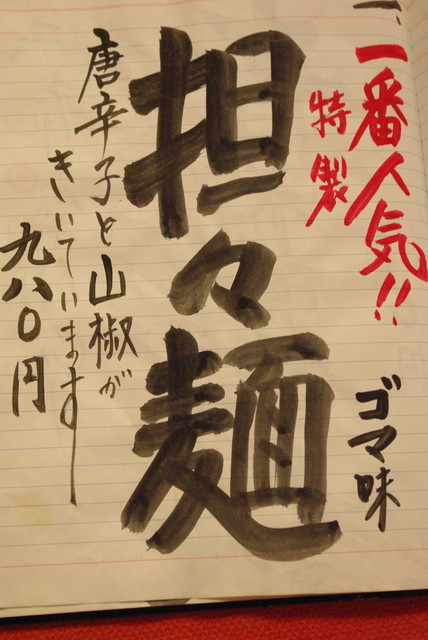 一番人気!!
ゴマ味
特製
担々麺
唐辛子と山椒が
きいています
九八〇円